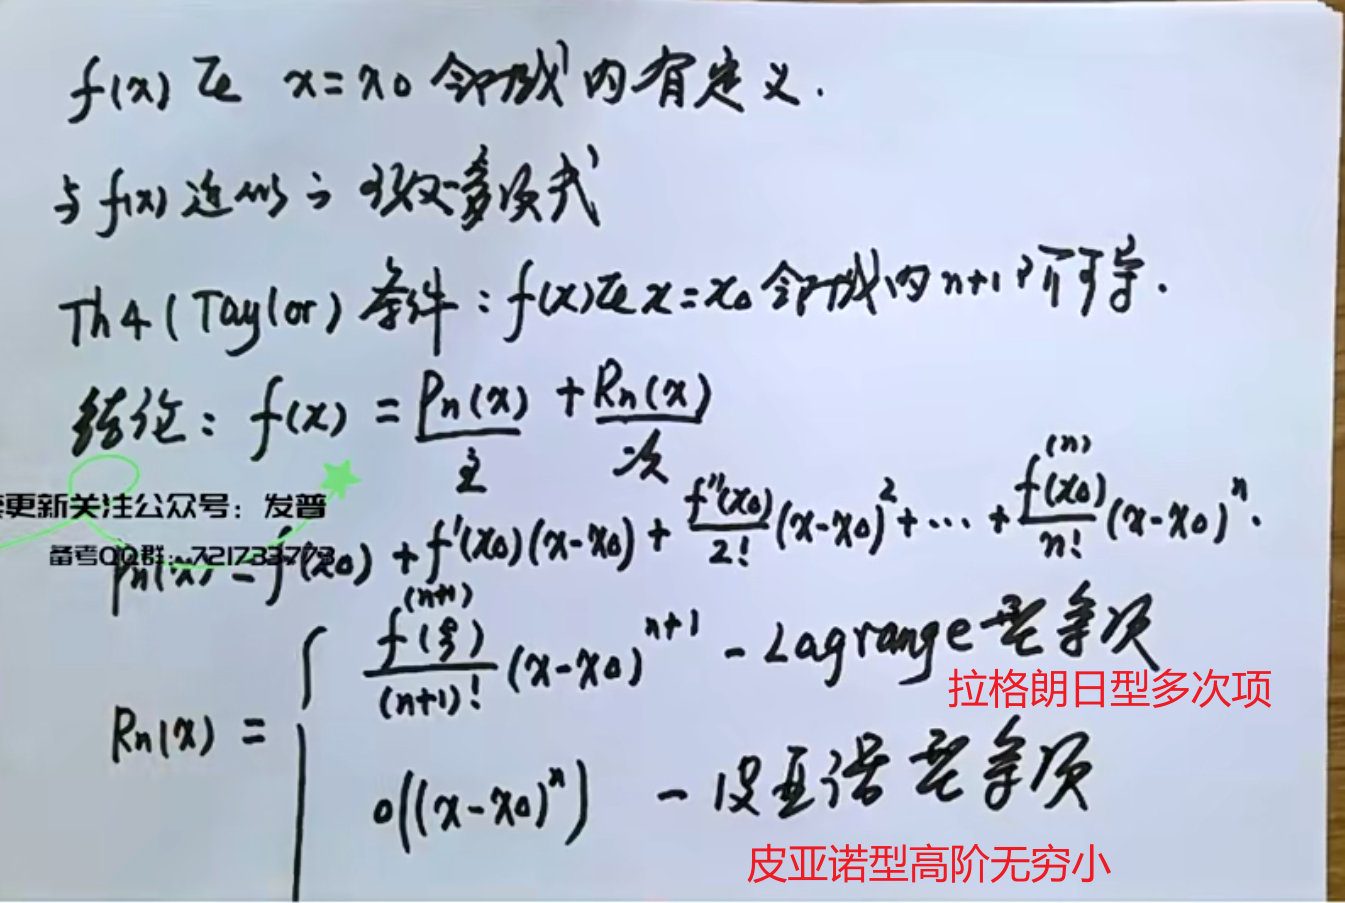 f(x)在 x=x₀ 邻域内有定义.
与f(x)近似的 n次多项式
Th4(Taylor)条件:f(x)在x=x₀邻域内n+1阶可导.
结论:f(x) = Pn(x) + Rn(x)
主 次
更新关注公众号:发普
备考QQ群:721733773
Pn(x) = f(x₀) + f'(x₀)(x-x₀) + f''(x₀)/2! (x-x₀)² + … + f⁽ⁿ⁾(x₀)/n! (x-x₀)ⁿ.
Rn(x) = { f⁽ⁿ⁺¹⁾(ξ)/(n+1)! (x-x₀)ⁿ⁺¹ - Lagrange型余项
拉格朗日型多次项
o((x-x₀)ⁿ) - 皮亚诺型余项
皮亚诺型高阶无穷小